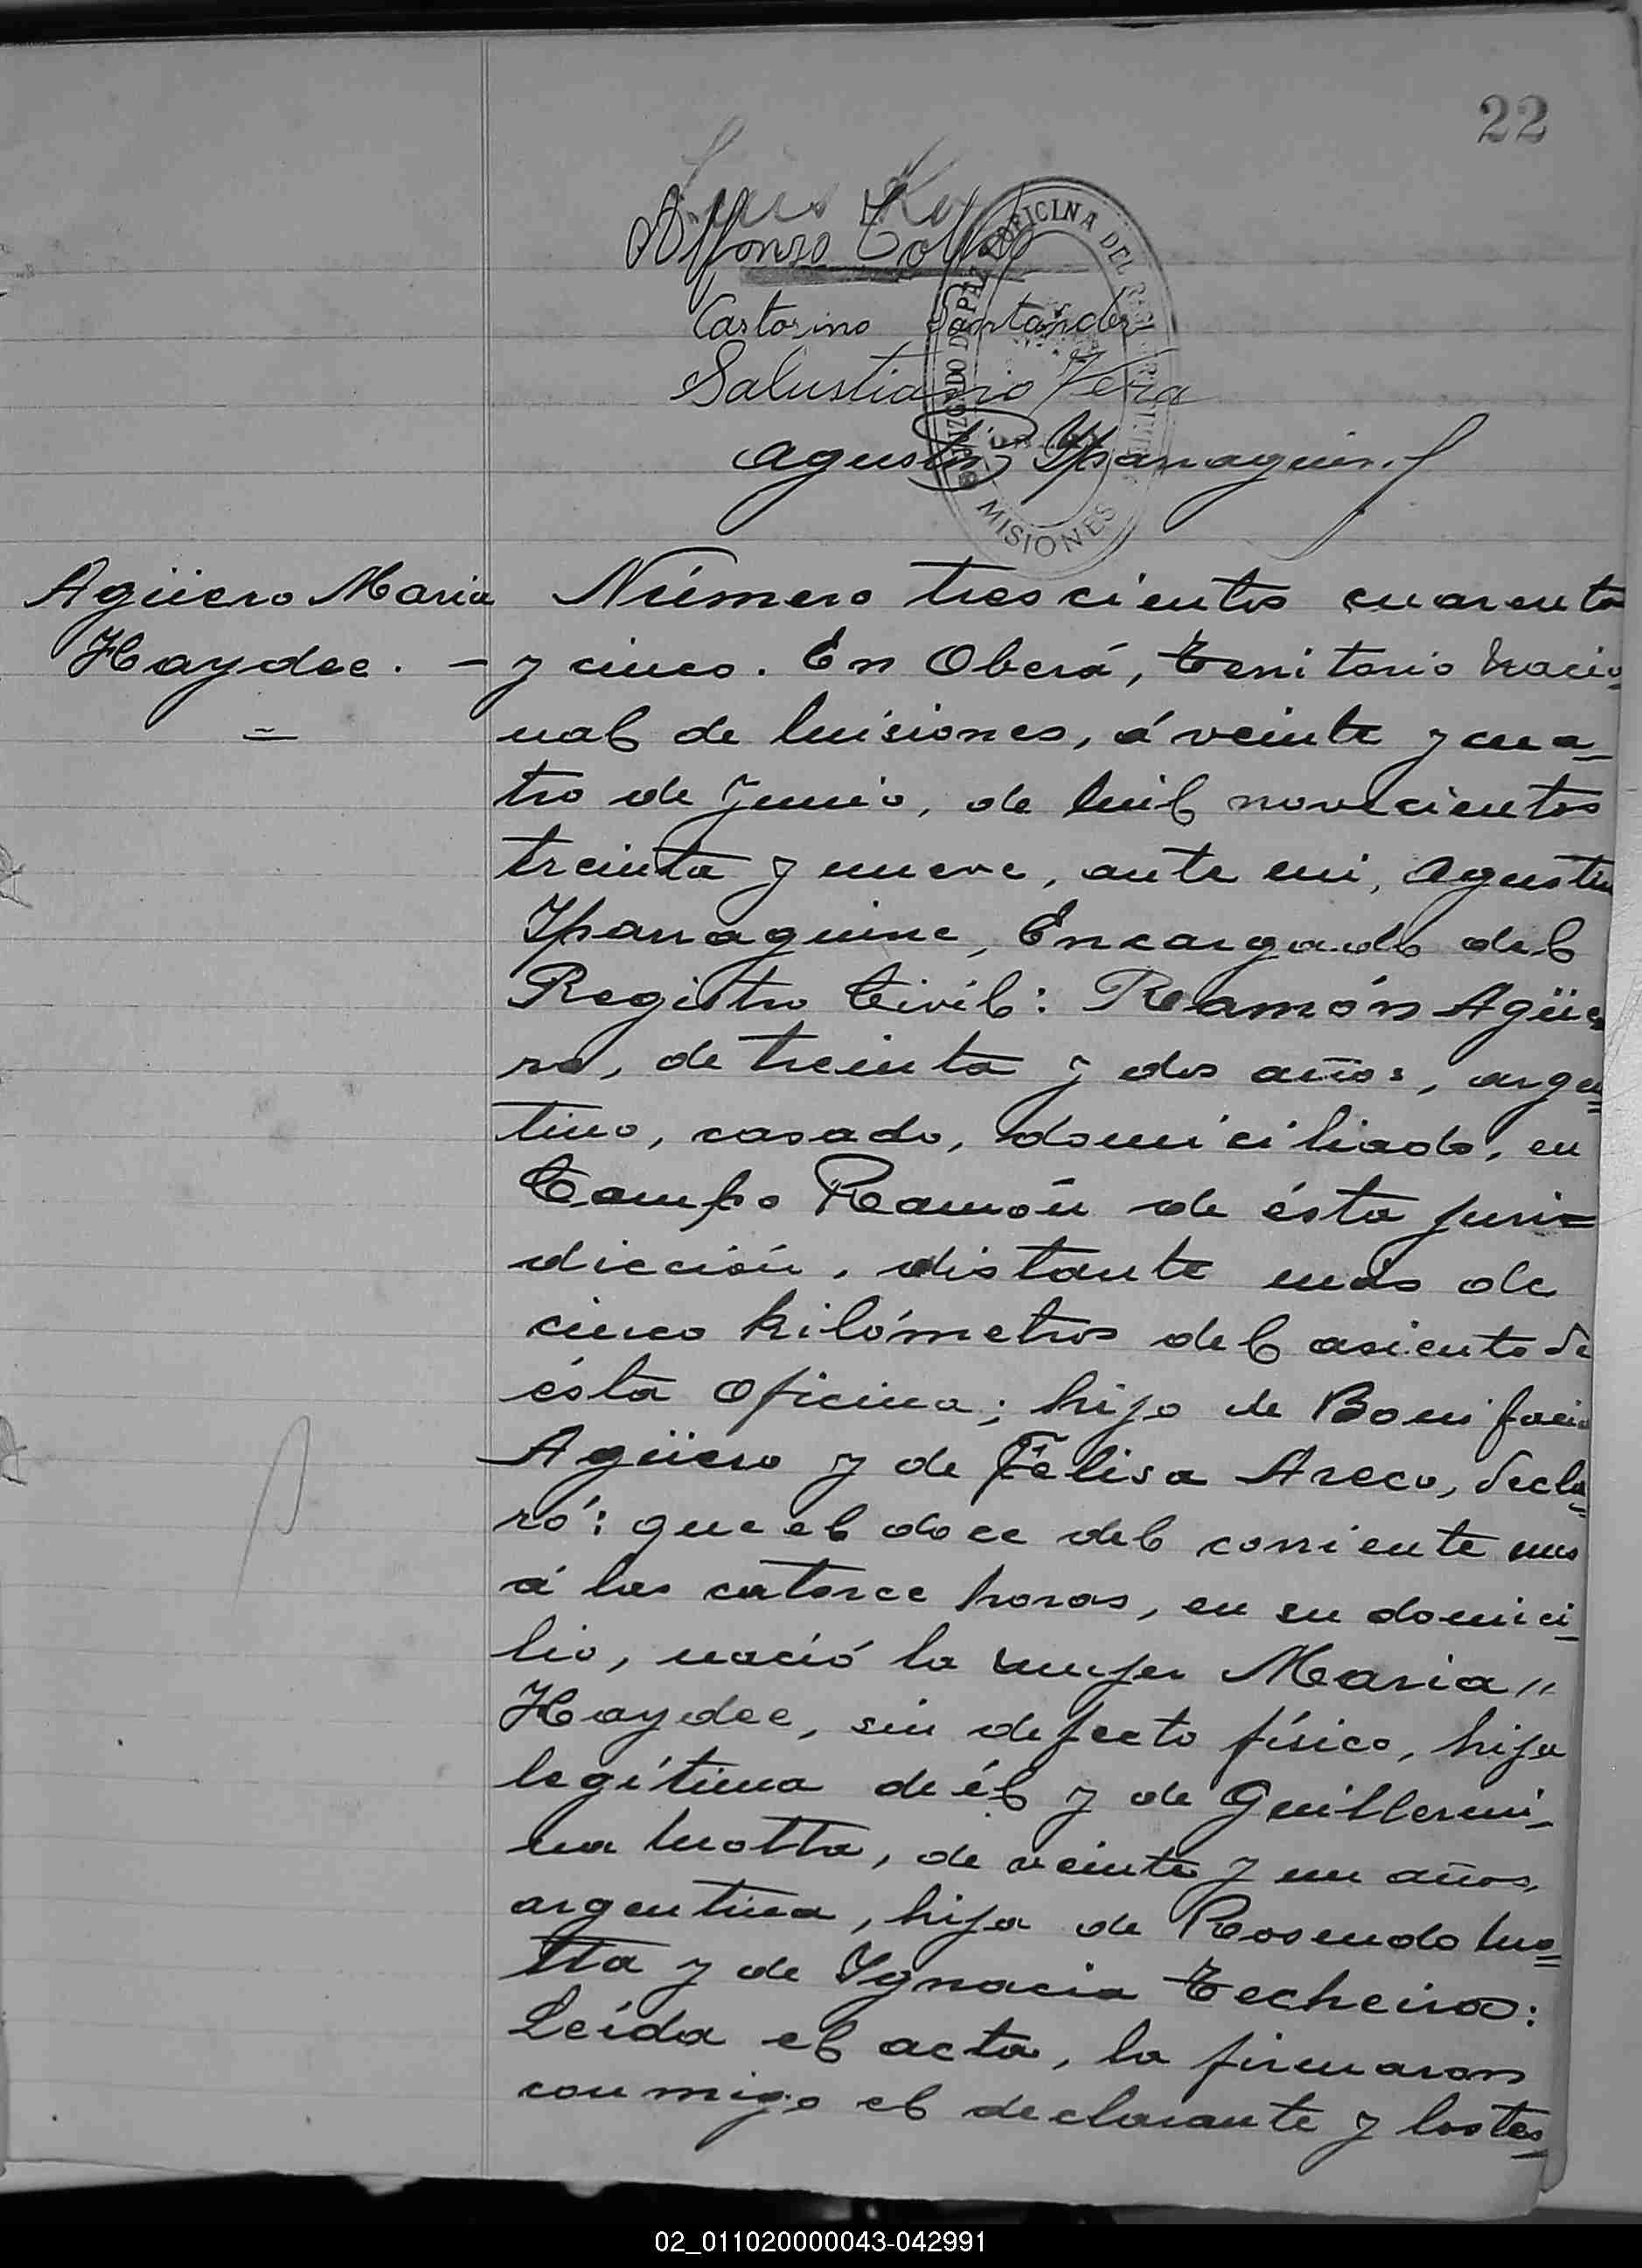 22
Luis
Alfonso
Castorino Santander
Salustiano Vera
Agustin Yparraguirre
OFICINA DEL
JUZGADO DE PAZ
MISIONES
Agüero Maria Número trescientos cuarenta
Haydee. – y cinco. En Oberá, Territorio Nacio-
nal de Misiones, á veinte y cua-
tro de Junio, de mil novecientos
treinta y nueve, ante mi, Agustin
Yparraguirre, Encargado del
Registro Civil: Ramón Agüe-
ro, de treinta y dos años, argen=
tino, casado, domiciliado, en
Campo Ramón de ésta juris=
dicción, distante más de
cinco kilómetros del asiento de
ésta Oficina; hijo de Bonifacio
Agüero y de Felisa Areco, decla-
ró: que el doce del corriente mes
á las catorce horas, en su domici-
lio, nació la mujer Maria "
Haydee, sin defecto físico, hija
legítima de él y de Guillermi-
na Motta, de veinte y un años,
argentina, hija de Rosendo Mo=
tta y de Ygnacia Techeira:
Leída el acta, la firmaron
conmigo el declarante y los tes-
02_011020000043-042991